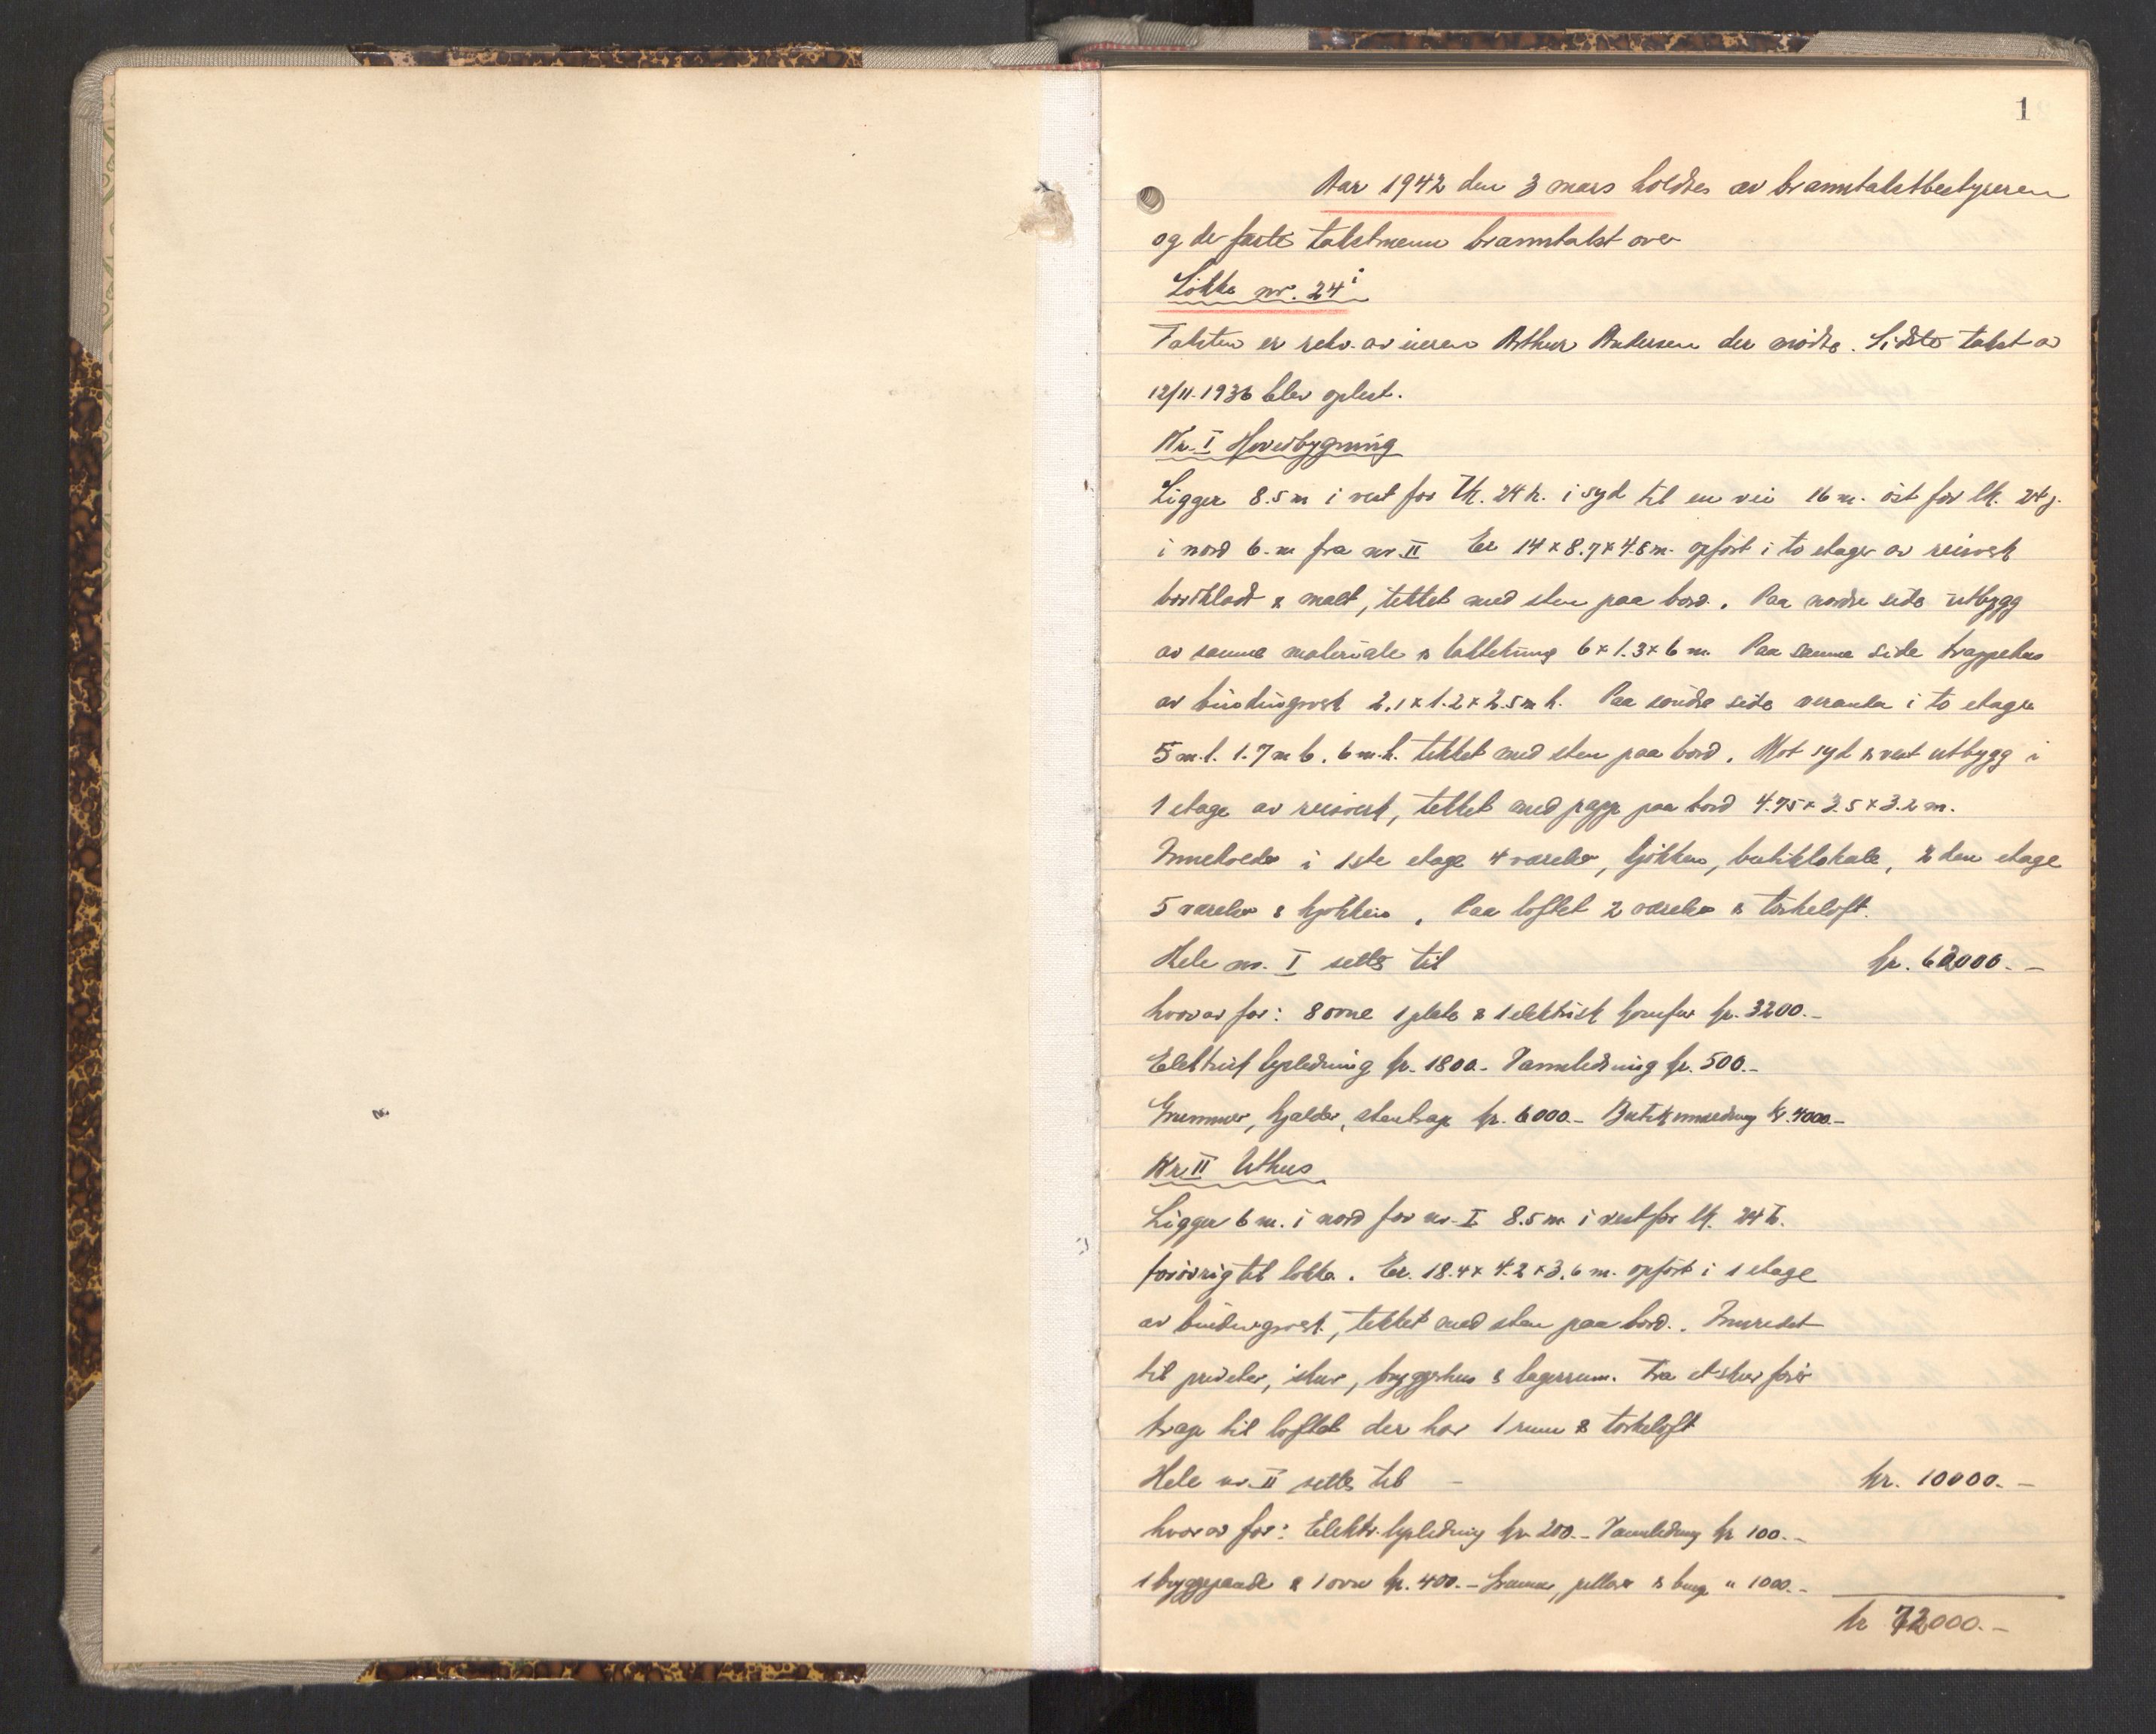 1
Aar 1942 den 3 mars holdtes av branntakstbestyreren
og de faste takstmenn branntakst over
Lökke nr. 24 i
Taksten er rekv. av eieren Arthur Andersen der mödte. Sidste takst av
12/11-1936 blev oplest.
Nr. I Hovedbygning
Ligger 8.5 m i vest for lk. 24 h. i syd til en vei 16 m. öst for lk. 24 j.
i nord 6. m fra nr. II Er 14 x 8.7 x 4.8 m. opfört i to etager av reisverk
bordklædt & malt, tekket med sten paa bord. Paa nordre side utbygg
av samme materiale & taktekning 6 x 1.3 x 6 m. Paa samme side trappehus
av bindingsverk 2.1 x 1.2 x 2.5 m h. Paa söndre side veranda i to etager
5 m. l. 1.7 m b. 6 m. h. tekket med sten paa bord. Mot syd & vest utbygg i
1 etage av reisverk, tekket med papp paa bord 4.75 x 3.5 x 3.2 m.
Inneholder i 1ste etage 4 værelser, kjökken, butiklokale, 2 den etage
5 værelser & kjökken. Paa loftet 2 værelser & törkeloft.
Hele nr. I settes til kr. 62000.-
hvorav for: 8 ovne 1 plate & 1 elektrisk komfur kr. 3200.-
Elektrisk lysledning kr. 1800.- Vannledning kr. 500.-
Grunnmur, kjelder, stentrapp kr. 6000.- Butikinnredning kr. 4000.-
Nr. II Uthus
Ligger 6 m. i nord for nr. I 8.5 m i vest for lk. 24 h.
forövrig til lökka. Er. 18.4 x 4.2 x 3.6 m. opfört i 1 etage
av bindingsverk, tekket med sten paa bord. Innredet
til priveter, skur, bryggerhus & lagerrum. Fra et skur förer
trapp til loftet der har 1 rum & törkeloft
Hele nr. II settes til - kr. 10000.-
hvorav for: Elektr. lysledning kr 200.- Vannledning kr 100.-
1 bryggepande & 1 ovn kr. 400.- Grunnmur, pillarer & " 1000.-
kr 72000.-